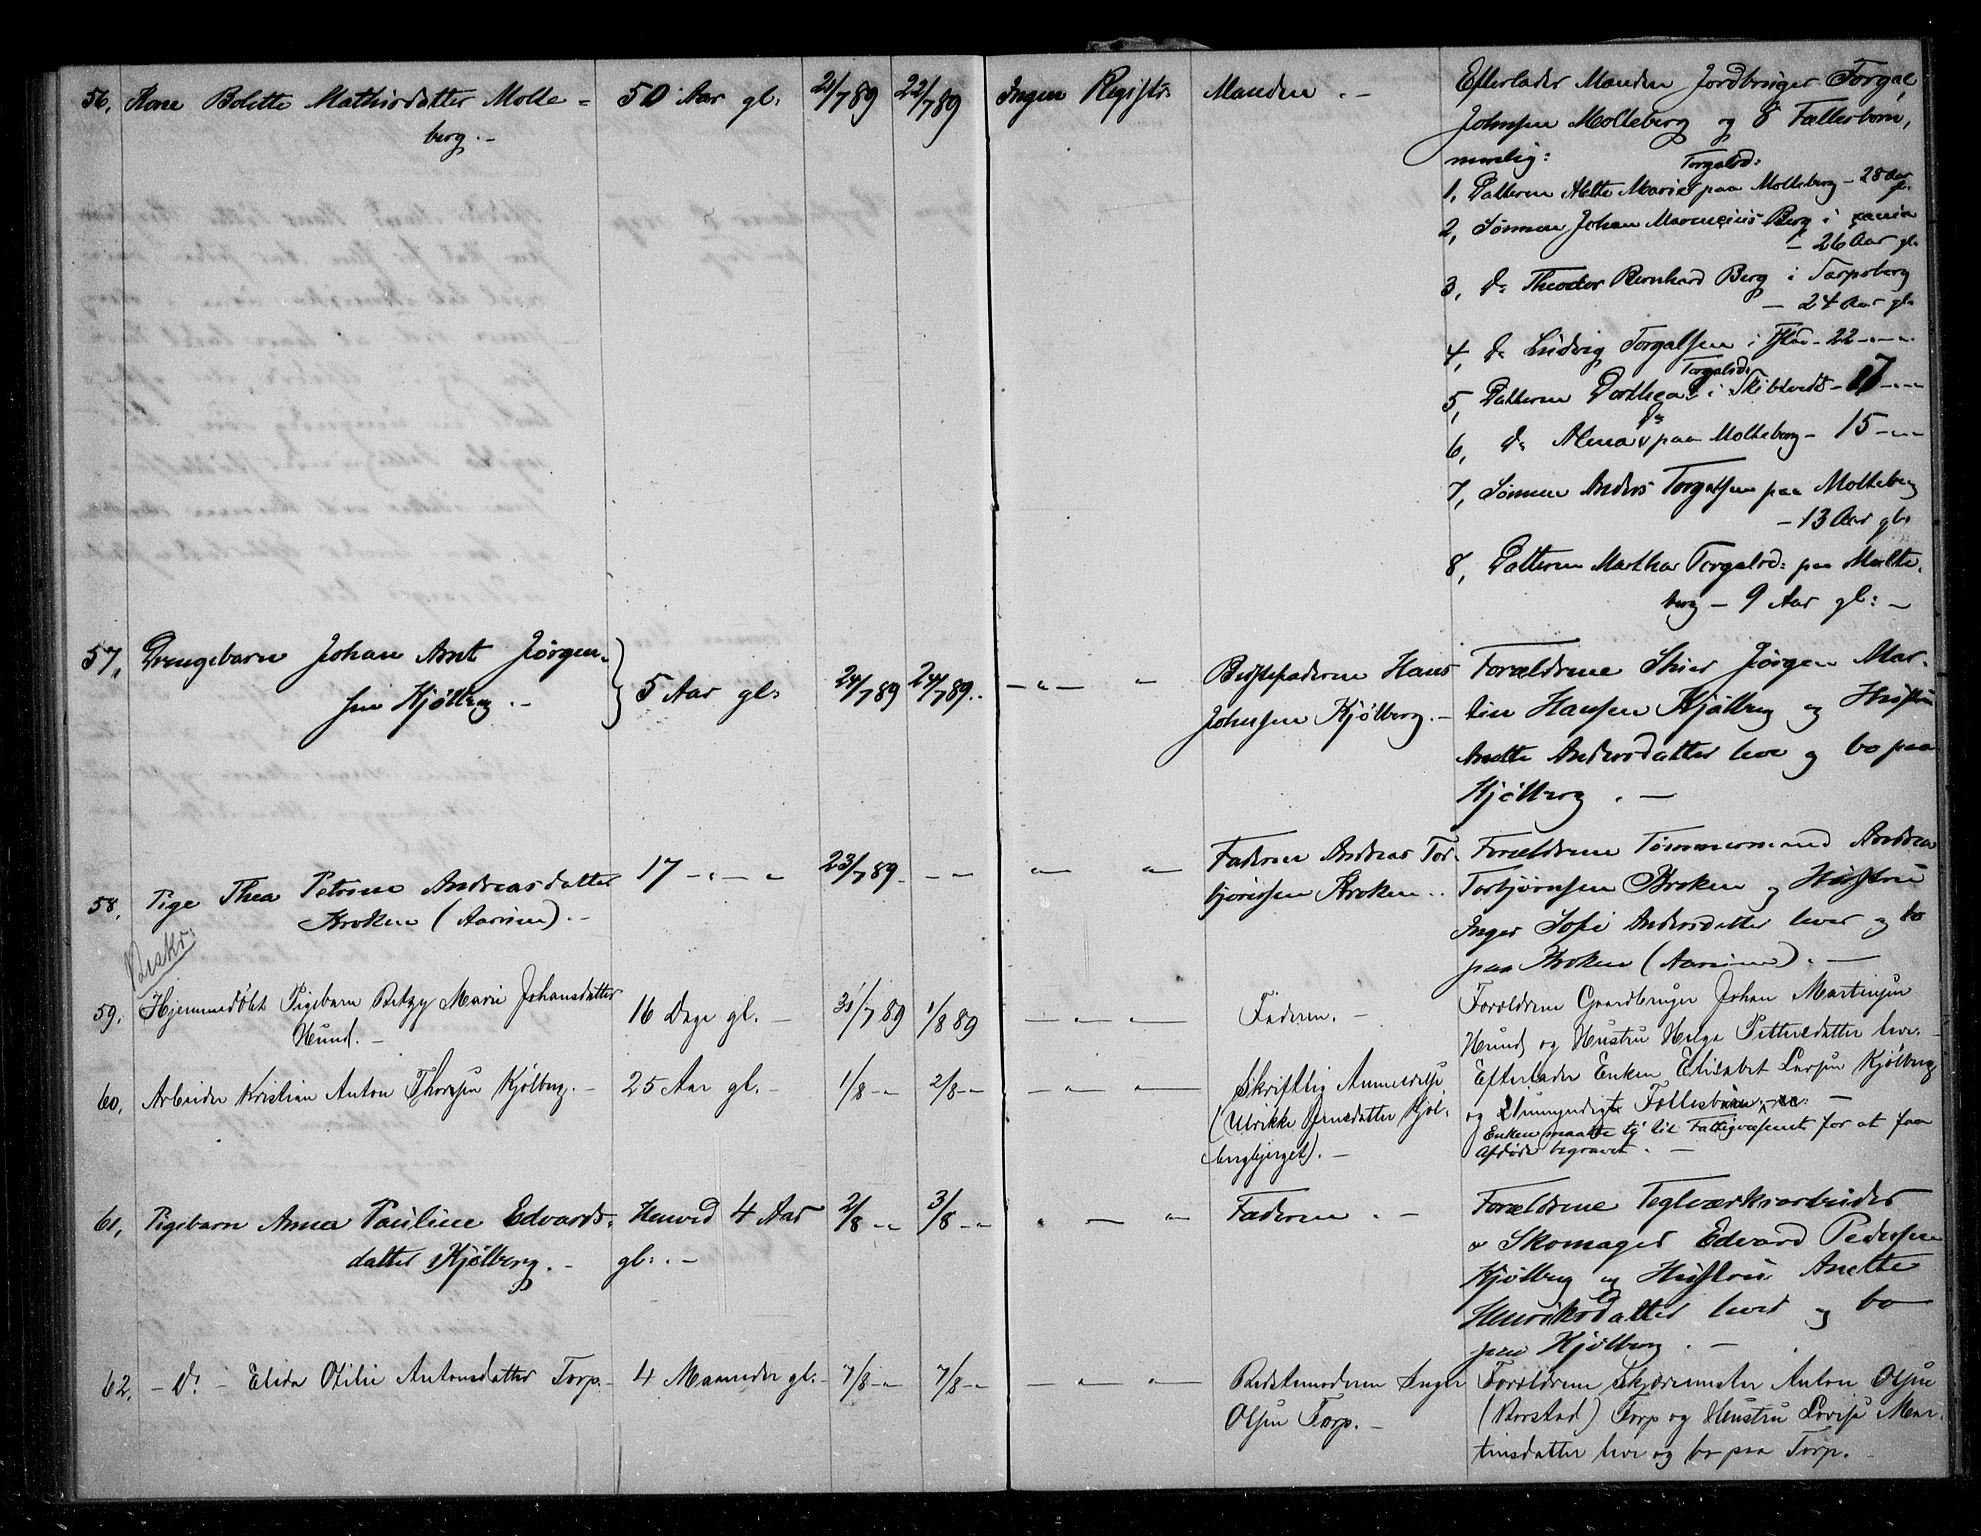 56, Kone Bolitte Mathisdatter Molte=
berg. -
50 Aar gl:
21/7 89
22/7 89
Ingen Registr:
Manden . -
Efterlader Manden Jordbruger Torgal
Johnsen Molteberg og 8 Fællesbørn,
1, Datteren Mette Marie Torgalsd: paa Molteberg - 28 Aar gl.
2, Sønnen Johan Berg i
- 26 Aar gl.
3, Do Theodor Bernhard Berg i Sarpsborg
- 24 Aar gl.
4, do Ludvig Torgalsen i - 22 - " -
5, Datteren Dorthea Torgalsd: i Skibtvedt - 17 - " -
6, do Alma do paa Molteberg - 15 - " -
7, Sønnen Anders Torgalsen paa Molteberg
- 13 Aar gl.
8, Datteren Marthea Torgalsd: paa Molte-
berg - 9 Aar gl: -
57, Drengebarn Johan Arnt Jørgen-
sen Kjølberg . -
5 Aar gl:
24/7 89
24/7 89 . .
- " - "
Bedstefaderen Hans
Johnsen Kjølberg . -
Forældrene Skier Jørgen Mar-
tin Hansen Kjølberg og Hustru
Anette Andersdatter leve og bo paa
Kjølberg . -
58, Pige Thea Petrine Andreasdatter
Kroken (Aarum). -
17 - " - "
23/7 89
- -
" "
Faderen Andreas Tor-
bjørnsen Kroken . .
Forældrene Tømmermand Andreas
Torbjørnsen Kroken og Hustru
Inger Sofie Andersdatter lever og bo
paa Kroken (Aarum) . -
Beskr:
59, Hjemmedøbt Pigebarn Betzy Marie Johansdatter
Hund. -
16 Dage gl. -
31/7 89
1/8 89
- " -
Faderen. -
Forældrene Gaardbruger Johan Martinsen
Hund og Hustru Helga Pettersdatter leve. -
60, Arbeider Kristian Anton Thorsen Kjølberg. -
25 Aar gl. -
1/8 - "
2/8 - "
- " " -
Skriftlig Anmeldelse
(Ulrikke Jensdatter Kjøl-
bergbjerget). -
Efterlader Enken Elisabet Larsen Kjølberg
og 2 umyndige Fællesbørn, -
Enken maatte ty til Fattigvæsenet for at faa
Afdøde begravet . -
61, Pigebarn Anna Pauline Edvards-
datter Kjølberg . -
Henved 4 Aar
gl: . -
2/8 - "
3/8 - "
" - "
Faderen . -
Forældrene Teglværksarbeider
o Skomager Edvard Pedersen
Kjølberg og Hustru Anette
Henriksdatter lever og bo
paa Kjølberg . -
62, - do - Elida Otilie Antonsdatter Torp. -
4 Maaneder gl. -
7/8 - "
7/8 - "
" "
Bedstemoderen Inger
Olsen Torp. -
Forældrene Skjærmester Anton Olsen
(Borstad) Torp og Hustru Lovise Mar-
tinsdatter leve og bo paa Torp. -